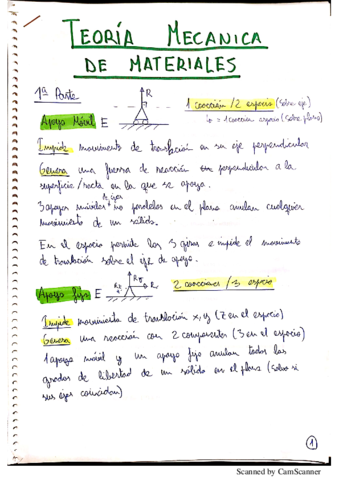 TEORÍA MECANICA
DE MATERIALES
1ª Parte
R
1 reacción / 2 espacio (sobre eje)
1 reacción espacio (sobre plano)
Apoyo Móvil E
Impide movimiento de translación en su eje perpendicular
Genera una fuerza de reacción perpendicular a la
superficie/recta en la que se apoya.
3 apoyos móviles no paralelos en el plano anulan cualquier
movimiento de un sólido.
En el espacio permite los 3 giros e impide el movimiento
de translación sobre el eje de apoyo.
Apoyo fijo E
2 reacciones / 3 espacio
Impide movimiento de translación x, y (z en el espacio)
Genera una reacción con 2 componentes (3 en el espacio)
1 apoyo móvil y un apoyo fijo anulan todos los
grados de libertad de un sólido en el plano (salvo si
sus ejes coinciden)
1
Scanned by CamScanner